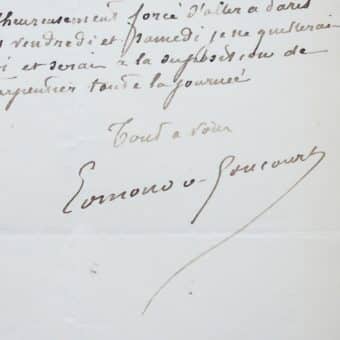 lheureusement forcé d'aller a paris
vendredi et samedi je ne quitterai
et serai a la disposition de
arpentier toute la journée
Tout a vous
Edmond de Goncourt